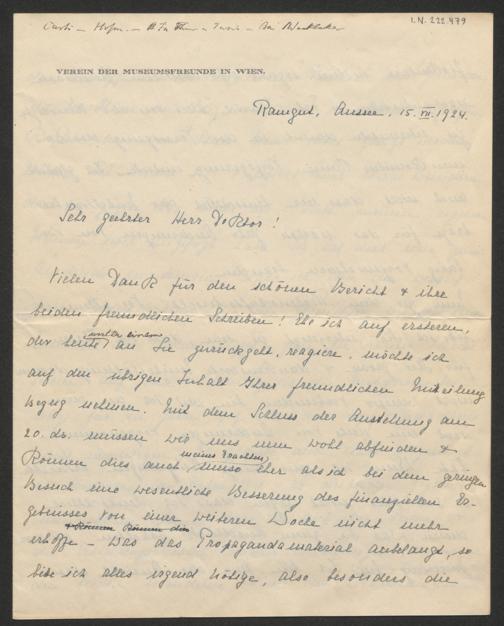 I.N. 222.479
VEREIN DER MUSEUMSFREUNDE IN WIEN.
Ramgut, Aussee, 15. VII. 1924.
Sehr geehrter Herr Doktor!
Vielen Dank für den schönen Bericht & ihre
beiden freundlichen Schreiben! Ehe ich auf ersteren,
der heute unter einem an Sie zurückgeht, reagiere, möchte ich
auf den übrigen Inhalt Ihrer freundlichen Mitteilung
Bezug nehmen. Mit dem Schluss der Ausstellung am
20. ds. müssen wir uns nun wohl abfinden &
können dies auch meines Erachtens, umso eher als ich bei dem geringen
Besuch eine wesentliche Besserung des finanziellen Er-
gebnisses von einer weiteren Woche nicht mehr
erhoffe – Was das Propagandamaterial anbelangt, so
bitte ich alles irgend nötige, also besonders die